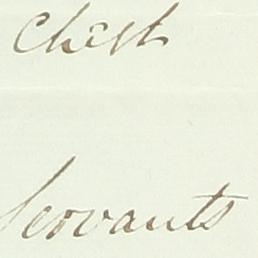 Chest
Servants